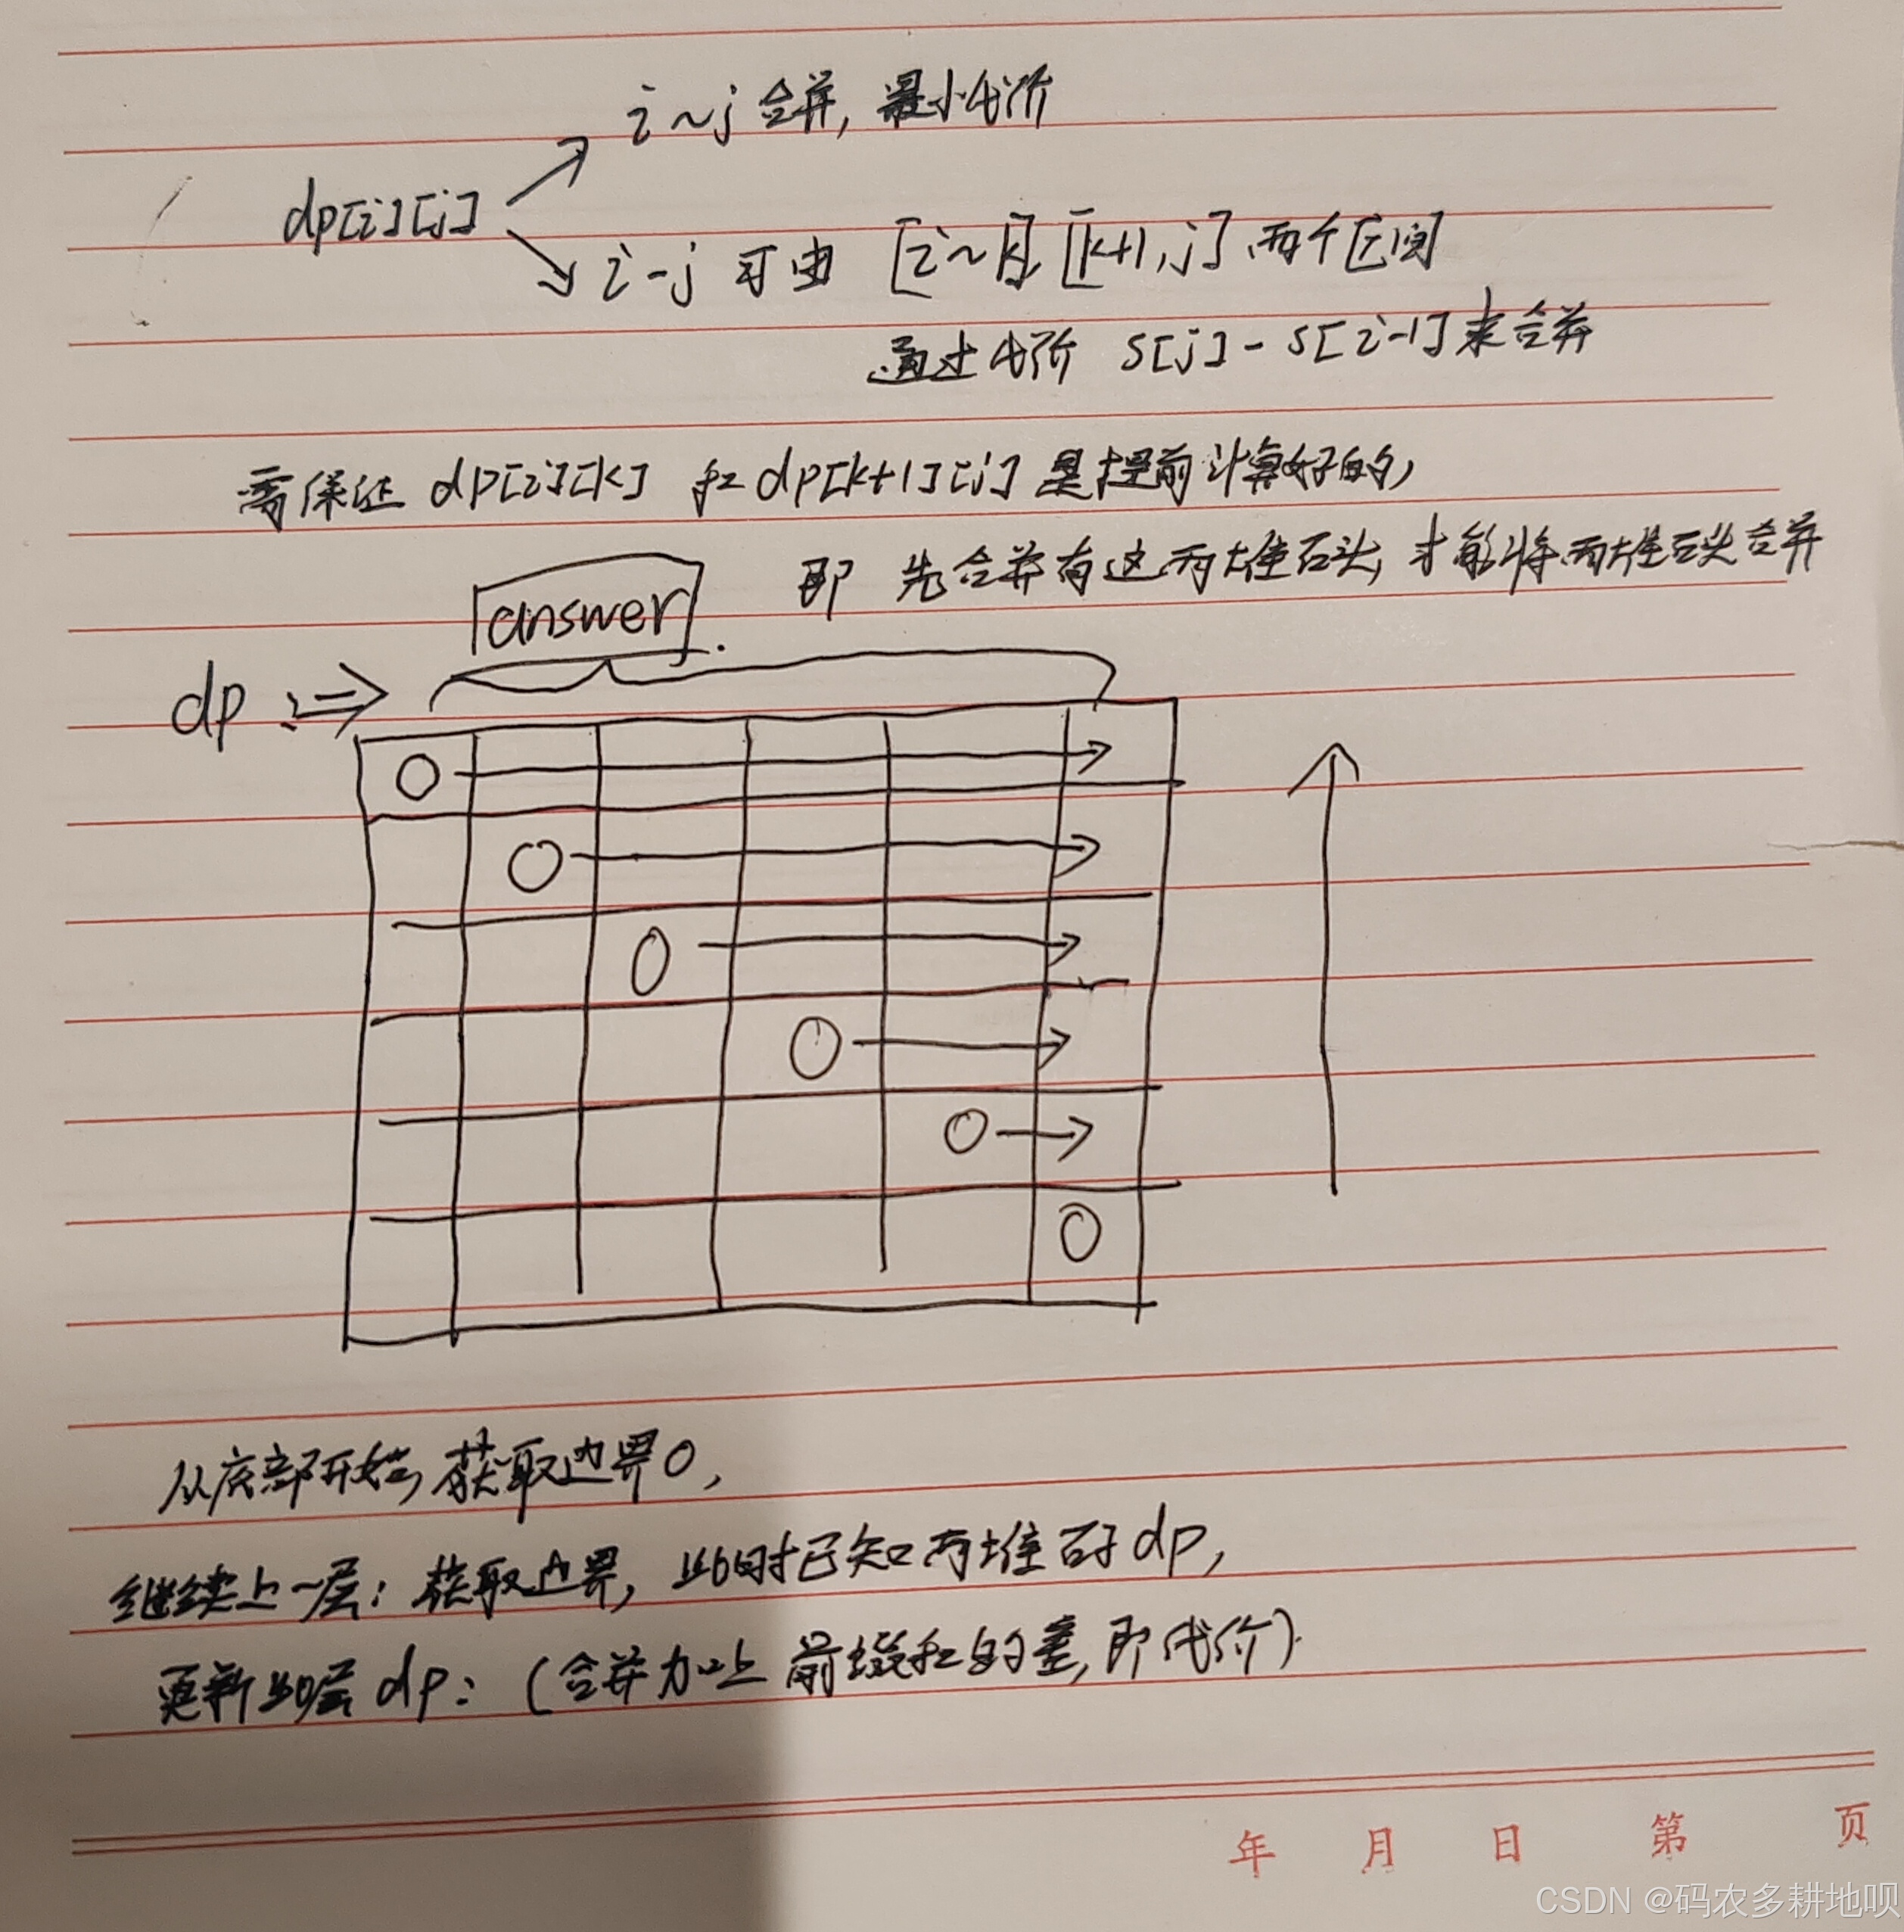 i~j 合并, 最小代价
dp[i][j]
i-j 可由 [i~k], [k+1,j] 两个区间
通过代价 s[j]-s[i-1]来合并
需保证 dp[i][k] 和 dp[k+1][j] 是提前计算好的,
即 先合并有这两堆石头, 才能将两堆石头合并
answer
dp :⇒
0
0
0
0
0
0
从底部开始, 获取边界0,
继续上一层: 获取边界, 此时已知两堆石子dp,
更新当层dp: (合并加上 前缀和的差, 即代价).
年 月 日 第 页
CSDN @码农多耕地呗